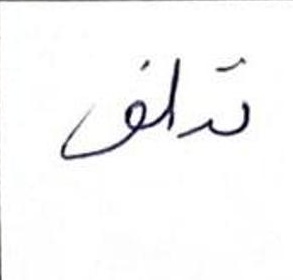 تدلف